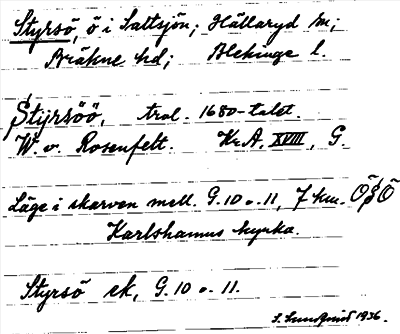 Styrsö, ö i Saltsjön; Hällaryd sn;
Bräkne hd; Blekinge l.
Styrsöö, trol. 1680-talet.
W. v. Rosenfelt. Kr.A. XVIII, G.
Läge i skarven mell. G.10 o. 11, 7 km. ÖSÖ
Karlshamns kyrka.
Styrsö ek, G.10 o. 11.
S. Lundqvist 1936.